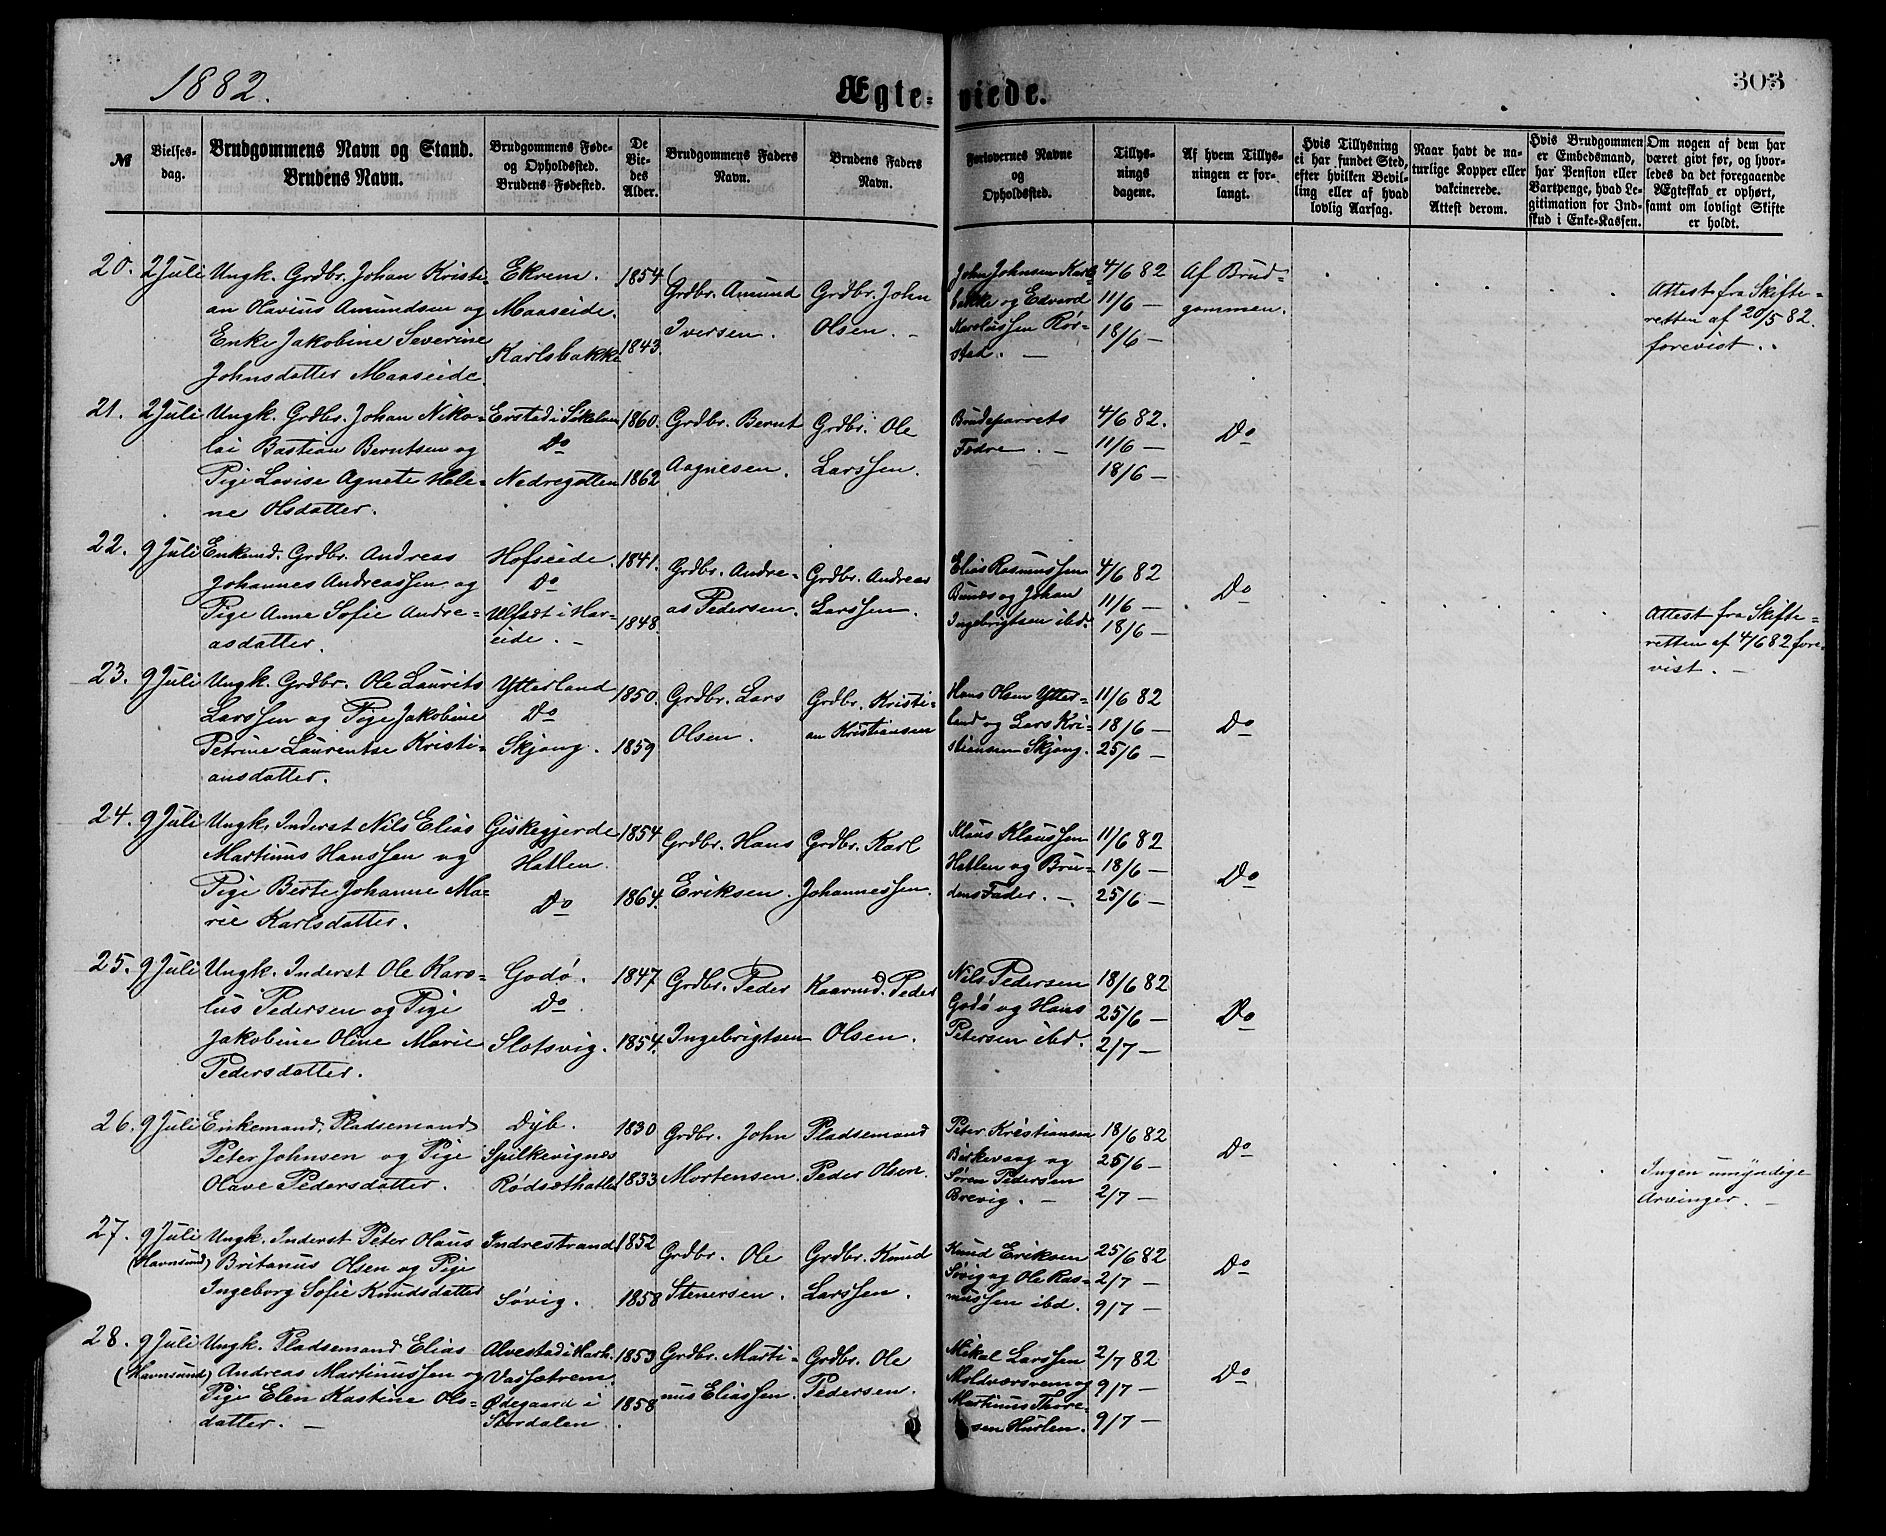 1882.
Ægte-viede.
303
№
Vielses-
dag.
Brudgommens Navn og Stand.
Brudens Navn.
Brudgommens Føde-
og Opholdssted.
Brudens Fødested.
De
Vie-
des
Alder.
Brudgommens Faders
Navn.
Brudens Faders
Navn.
Forlovernes Navne
og
Opholdssted.
Tillys-
nings
dagene.
Af hvem Tillys-
ningen er for-
langt.
Hvis Tillysning
ei har fundet Sted,
efter hvilken Bevil-
ling eller af hvad
lovlig Aarsag.
Naar havt de na-
turlige Kopper eller
vakcinerede.
Attest derom.
Hvis Brudgommen
er Embedsmand,
har Pension eller
Vartpenge, hvad Le-
gitimation for Ind-
skud i Enke-Kassen.
Om nogen af dem har
været givt før, og hvor-
ledes da det foregaaende
Ægteskab er ophørt,
samt om lovligt Skifte
er holdt.
20.
2 Juli
Ungk. Grdbr. Johan Kristi-
an Olavius Amundsen og
Enke Jakobine Severine
Johnsdatter Maaseide.
Ekrem.
Maaseide.
Karlsbakke
1854
1843.
Grdbr. Amund
Iversen.
Grdbr. John
Olsen. -
John Johnsen Karls-
bakke og Edvard
Karolussen Rør-
stad. -
4/6 82
11/6 -
18/6 -
Af Brud-
gommen.
Attest fra Skifte-
retten af 20/5 82.
forevist.
21.
2 Juli
Ungk. Grdbr. Johan Niko-
lai Bastian Berntsen og
Pige Lovise Agnete Hele-
ne Olsdatter.
Erstad i Søkelven
Do
Nedregotten
1860.
1862
Grdbr. Bernt
Aagnesen.
Grdbr. Ole
Larssen.
Brudeparrets
Fædre. -
4/6 82.
11/6 -
18/6 -
Do
22.
9 Juli
Enkemd. Grdbr. Andreas
Johannes Andreassen og
Pige Anne Sofie Andre-
asdatter.
Hofseide.
Do
Ulfsæt i Har-
eide. -
1841.
1848.
Grdbr. Andre-
as Pedersen.
Grdbr. Andreas
Larssen.
Elias Rasmussen
Bunes og Johan
Ingebrigtsen ibd.
4/6 82
11/6 -
18/6 -
Do
Attest fra Skifte-
retten af 4/6 82 fore-
vist. -
23.
9 Juli
Ungk. Grdbr. Ole Laurits
Larssen og Pige Jakobine
Petrine Laurentse Kristi-
ansdatter.
Ytterland
Do
Skjong.
1850.
1859
Grdbr. Lars
Olsen.
Grdbr. Kristi-
an Kristiansen
Hans Olsen Ytter-
land og Lars Kri-
stiansen Skjong.
11/6 82
18/6 -
25/6 -
Do
24.
9 Juli
Ungk. Inderst Nils Elias
Martinus Hanssen og
Pige Berte Johanne Ma-
rie Karlsdatter.
Giskegjerde
Hatlen.
Do
1854
1864.
Grdbr. Hans
Eriksen.
Grdbr. Karl
Johannessen.
Klaus Klaussen
Hatlen og Bru-
dens Fader. -
11/6 82
18/6 -
25/6 -
Do
25.
9 Juli
Ungk. Inderst Ole Karo-
lus Pedersen og Pige
Jakobine Oline Marie
Pedersdatter.
Godø.
Do
Slotsvig.
1847
1854.
Grdbr. Peder
Ingebrigtsen
Kaarmd. Peder
Olsen.
Nils Pedersen
Godø og Hans
Petersen ibd.
18/6 82
25/6 -
2/7 -
Do
26.
9 Juli
Enkemand, Pladsemand
Peter Johnsen og Pige
Olave Pedersdatter.
Dyb.
Spilkevignes
Rødsæthatlen
1830
1833
Grdbr. John
Mortensen.
Pladsemand
Peder Olsen.
Peter Kristiansen
Birkevaag og
Søren Pedersen
Brevig. -
18/6 82
25/6 -
2/7 -
Do
Ingen umyndige
Arvinger. -
27.
9 Juli
(Havnsund)
Ungk. Inderst Peter Olaus
Britanus Olsen og Pige
Ingeborg Sofie Knudsdatter
Indrestrand
Søvig.
1852
1858
Grdbr. Ole
Stenersen.
Grdbr. Knud
Larssen.
Knud Eriksen
Søvig og Ole Ras-
mussen ibd.
25/6 82
2/7 -
9/7 -
Do
28.
9 Juli
(Havnsund)
Ungk. Pladsemand Elias
Andreas Martinussen og
Pige Elen Kastine Ols-
datter. -
Alvestad i Hark.
Vassætrem.
Ødegaard i
Stordalen
1853
1858
Grdbr. Marti-
nus Eliassen.
Grdbr. Ole
Pedersen.
Mikal Larssen
Moldværsrem og
Martinus Thore-
sen Hurlen.
2/7 82
9/7 -
9/7 -
Do